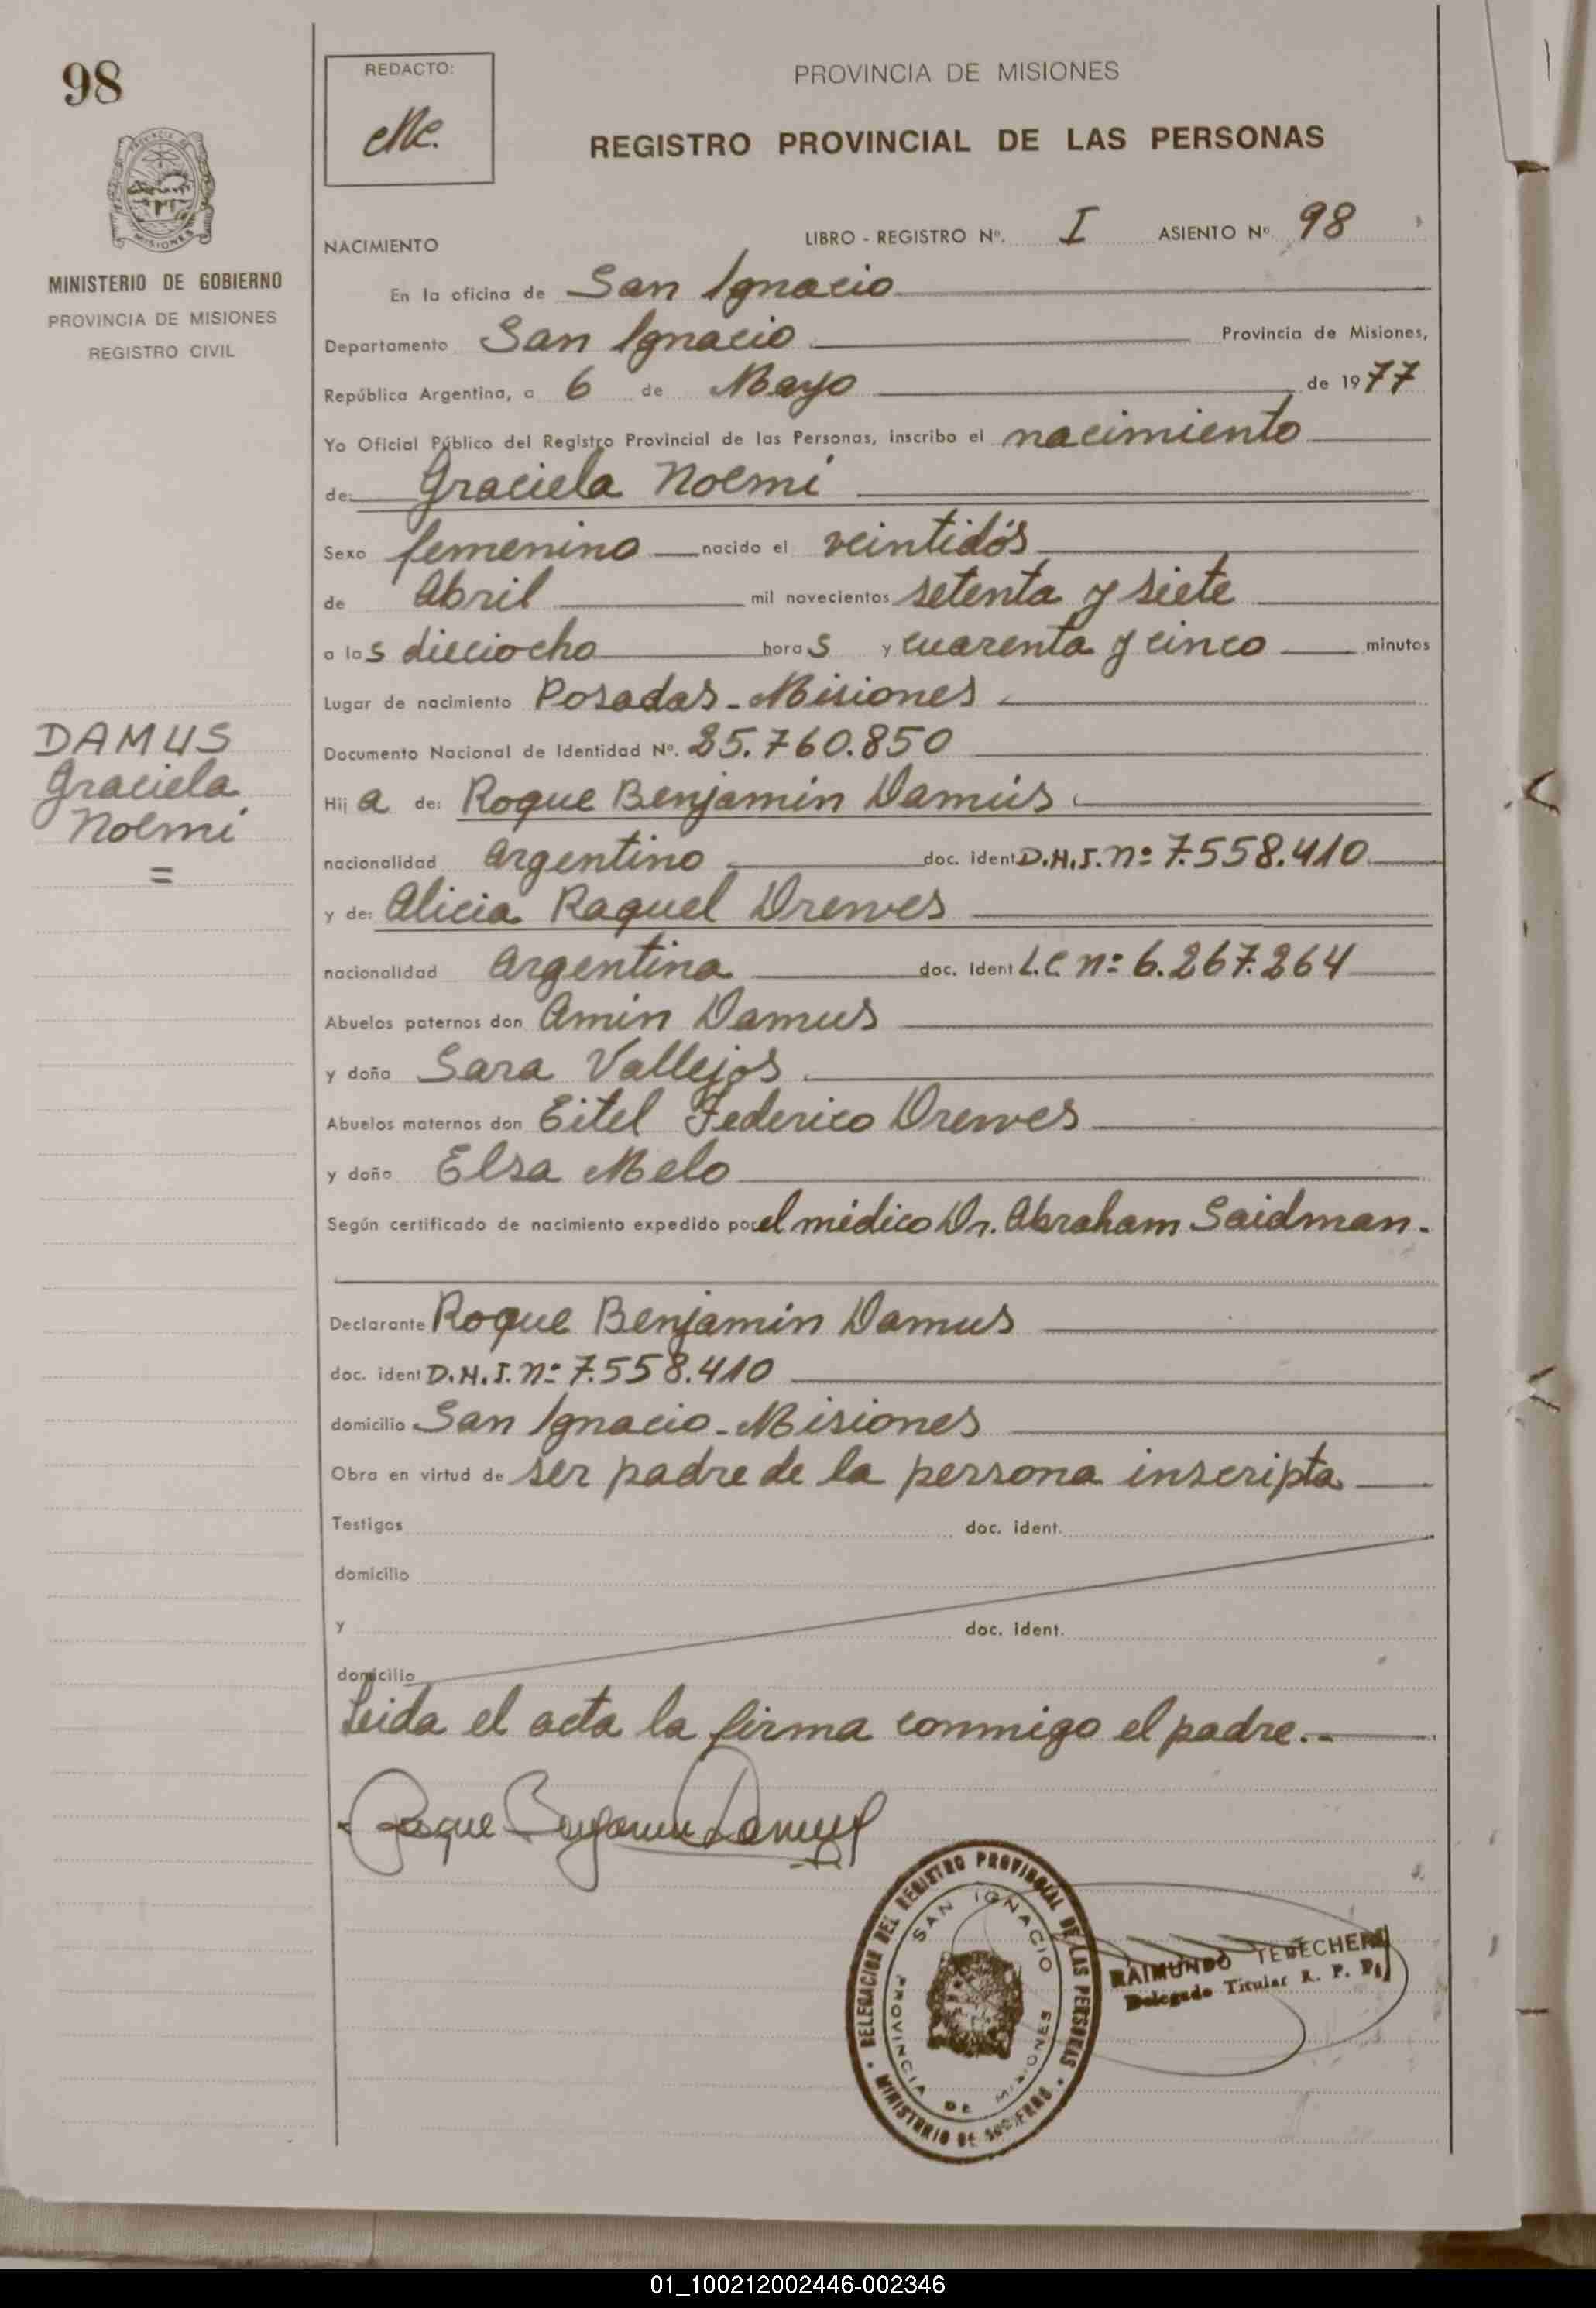 98
REDACTO:
Mc.
PROVINCIA DE MISIONES
REGISTRO PROVINCIAL DE LAS PERSONAS
PROVINCIA DE
MISIONES
MINISTERIO DE GOBIERNO
PROVINCIA DE MISIONES
REGISTRO CIVIL
NACIMIENTO LIBRO - REGISTRO Nº. I ASIENTO Nº. 98
En la oficina de San Ignacio
Departamento San Ignacio Provincia de Misiones,
República Argentina, a 6 de Mayo de 1977
Yo Oficial Público del Registro Provincial de las Personas, inscribo el nacimiento
de: Graciela Noemi
Sexo femenino nacido el veintidós
de Abril mil novecientos setenta y siete
a las dieciocho horas y cuarenta y cinco minutos
Lugar de nacimiento Posadas - Misiones
Documento Nacional de Identidad Nº. 25.760.850
DAMUS
Graciela
Noemi
=
Hija de: Roque Benjamin Damús
nacionalidad Argentino doc. ident D.N.I. nº 7.558.410
y de: Alicia Raquel Drewes
nacionalidad Argentina doc. Ident L.C nº 6.267.264
Abuelos paternos don Amin Damus
y doña Sara Vallejos
Abuelos maternos don Eitel Federico Drewes
y doña Elsa Melo
Según certificado de nacimiento expedido por el médico Dr. Abraham Saidman.
Declarante Roque Benjamin Damus
doc. ident D.N.I. nº 7.558.410
domicilio San Ignacio - Misiones
Obra en virtud de ser padre de la persona inscripta
Testigos doc. ident.
domicilio
y doc. ident.
domicilio
Leida el acta la firma conmigo el padre.-
Roque Benjamin Damus
DELEGACION DEL REGISTRO PROVINCIAL DE LAS PERSONAS
SAN IGNACIO
PROVINCIA DE MISIONES
MINISTERIO DE GOBIERNO
RAIMUNDO
Delegado Titular R. P. P.
01_100212002446-002346